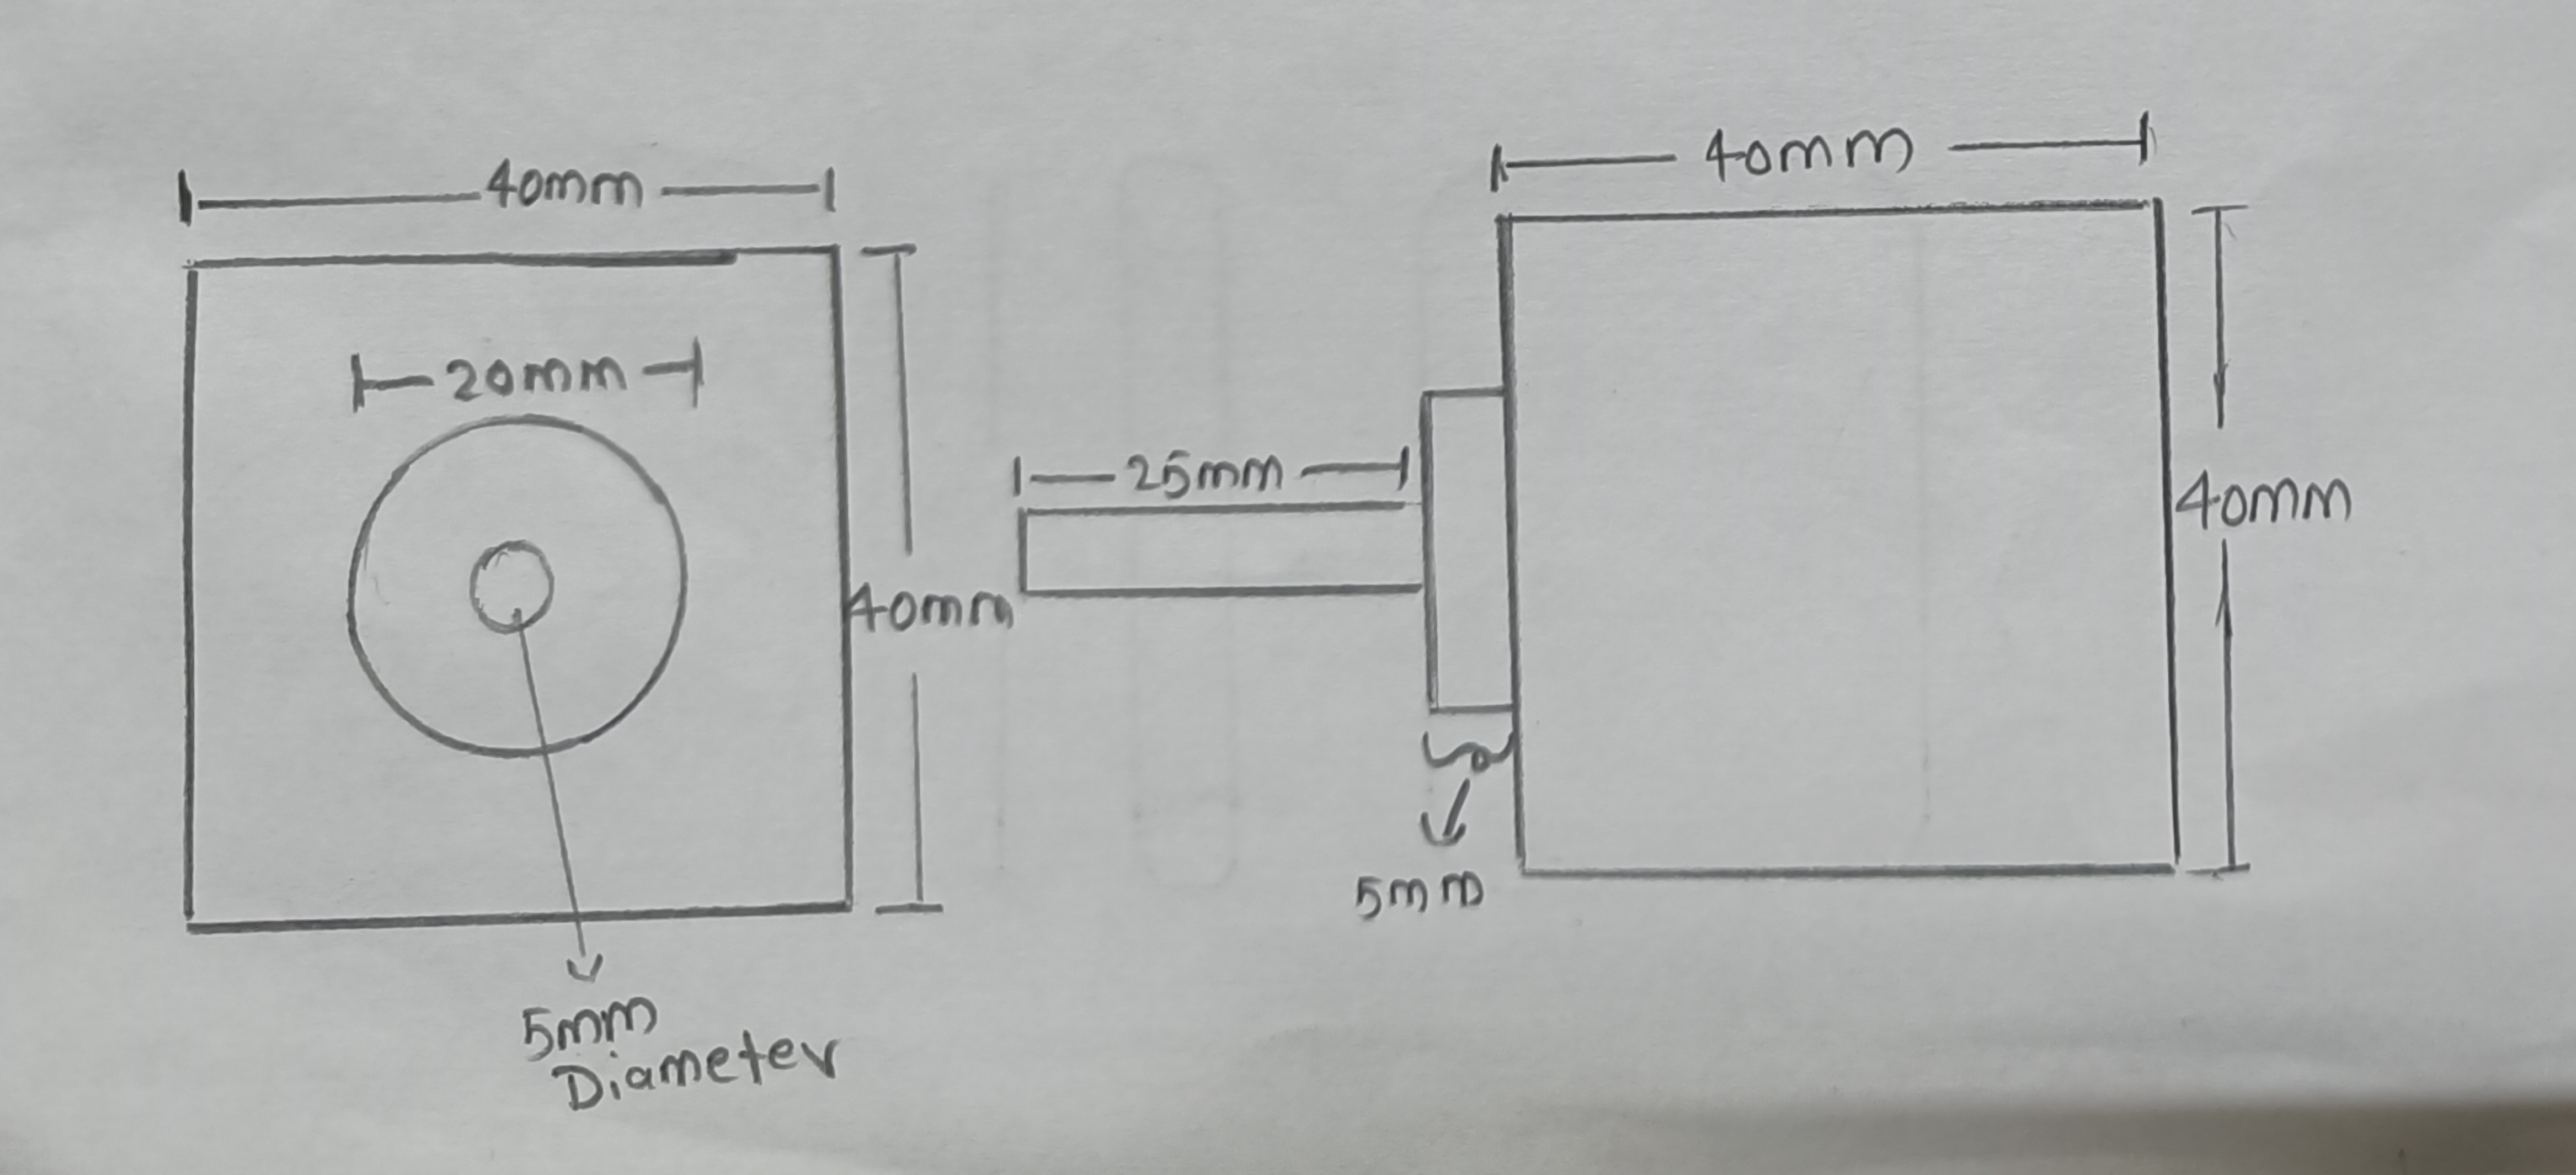 40mm
20mm
40mm
5mm
Diameter
40mm
25mm
40mm
5mm